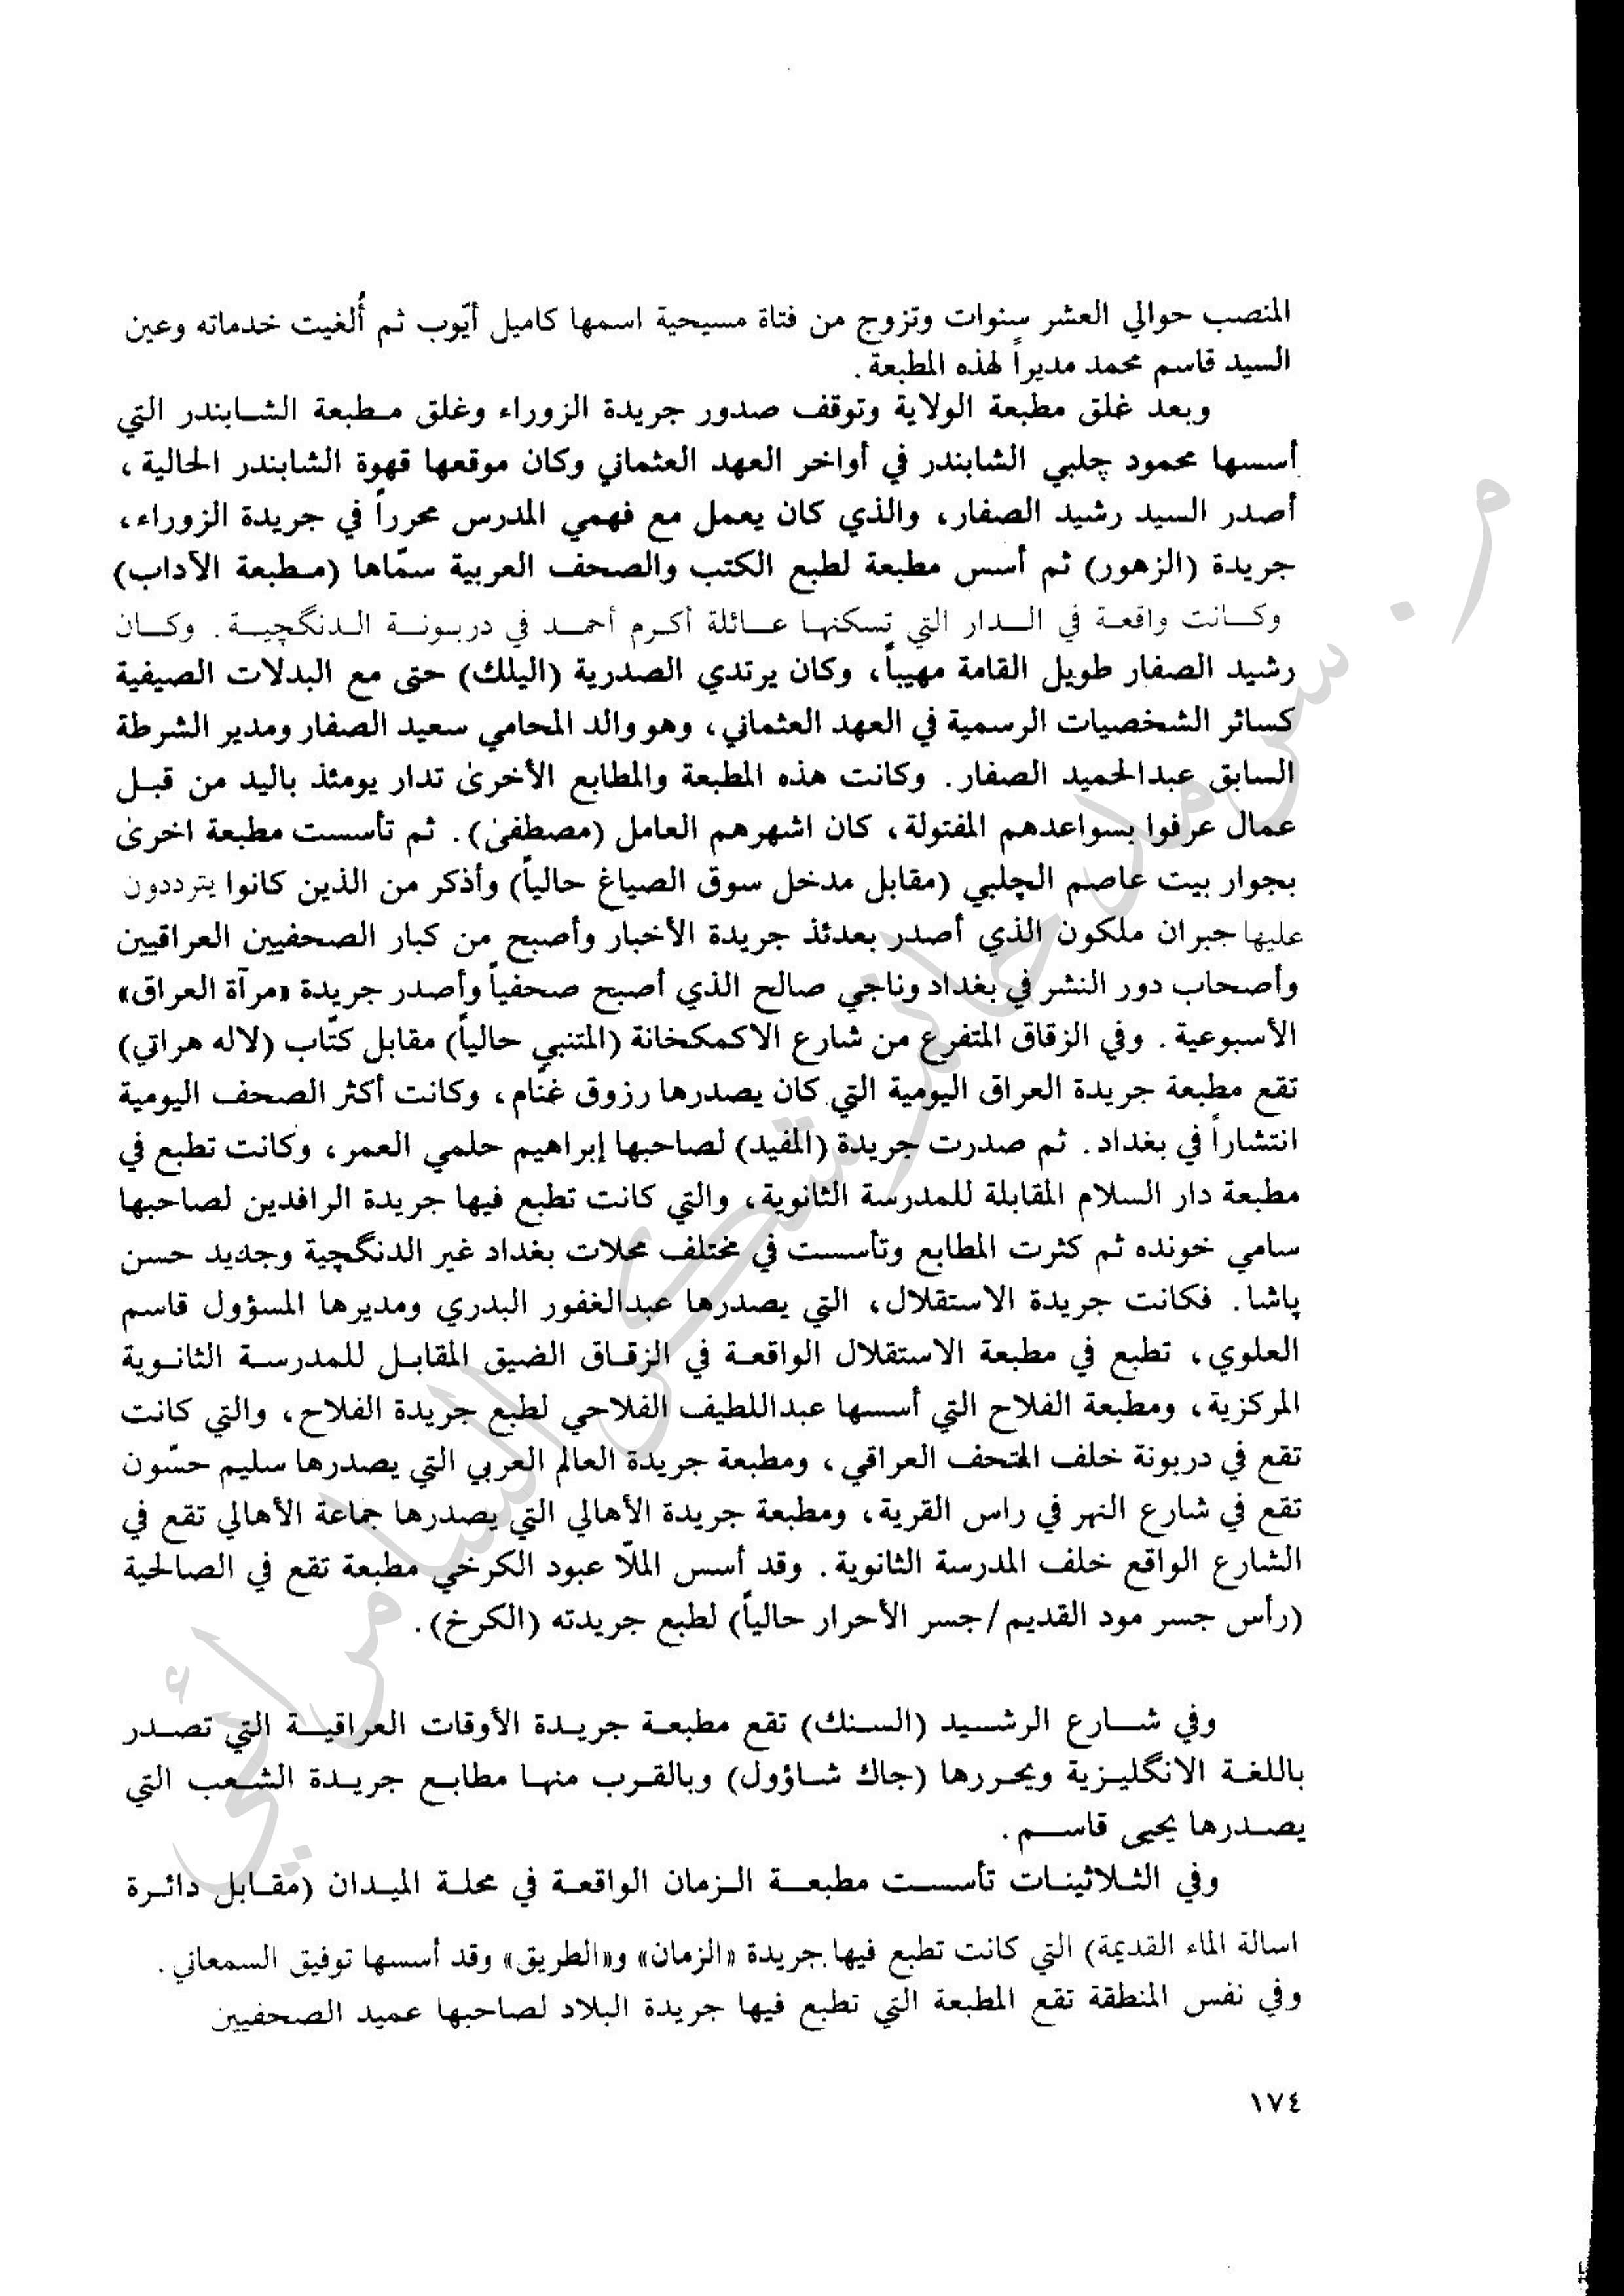 المنصب حوالي العشر سنوات وتزوج من فتاة مسيحية اسمها كاميل أيّوب ثم أُلغيت خدماته وعين
السيد قاسم محمد مديراً لهذه المطبعة .
وبعد غلق مطبعة الولاية وتوقف صدور جريدة الزوراء وغلق مطبعة الشابندر التي
أسسها محمود چلبي الشابندر في أواخر العهد العثماني وكان موقعها قهوة الشابندر الحالية ،
أصدر السيد رشيد الصفار، والذي كان يعمل مع فهمي المدرس محرراً في جريدة الزوراء،
جريدة (الزهور) ثم أسس مطبعة لطبع الكتب والصحف العربية سمّاها (مطبعة الآداب)
وكانت واقعة في الدار التي تسكنها عائلة أكرم أحمد في دربونة الدنگچية . وكان
رشيد الصفار طويل القامة مهيباً، وكان يرتدي الصدرية (اليلك) حتى مع البدلات الصيفية
كسائر الشخصيات الرسمية في العهد العثماني، وهو والد المحامي سعيد الصفار ومدير الشرطة
السابق عبدالحميد الصفار. وكانت هذه المطبعة والمطابع الأخرىٰ تدار يومئذ باليد من قبل
عمال عرفوا بسواعدهم المفتولة، كان اشهرهم العامل (مصطفىٰ). ثم تأسست مطبعة اخرىٰ
بجوار بيت عاصم الچلبي (مقابل مدخل سوق الصياغ حالياً) وأذكر من الذين كانوا يترددون
عليها جبران ملكون الذي أصدر بعدئذ جريدة الأخبار وأصبح من كبار الصحفيين العراقيين
وأصحاب دور النشر في بغداد وناجي صالح الذي أصبح صحفياً وأصدر جريدة «مرآة العراق»
الأسبوعية . وفي الزقاق المتفرع من شارع الاكمكخانة (المتنبي حالياً) مقابل كتّاب (لاله هراتي)
تقع مطبعة جريدة العراق اليومية التي كان يصدرها رزوق غنّام، وكانت أكثر الصحف اليومية
انتشاراً في بغداد. ثم صدرت جريدة (المفيد) لصاحبها إبراهيم حلمي العمر، وكانت تطبع في
مطبعة دار السلام المقابلة للمدرسة الثانوية، والتي كانت تطبع فيها جريدة الرافدين لصاحبها
سامي خونده ثم كثرت المطابع وتأسست في مختلف محلات بغداد غير الدنگچية وجديد حسن
پاشا. فكانت جريدة الاستقلال، التي يصدرها عبدالغفور البدري ومديرها المسؤول قاسم
العلوي، تطبع في مطبعة الاستقلال الواقعة في الزقاق الضيق المقابل للمدرسة الثانوية
المركزية، ومطبعة الفلاح التي أسسها عبداللطيف الفلاحي لطبع جريدة الفلاح، والتي كانت
تقع في دربونة خلف المتحف العراقي، ومطبعة جريدة العالم العربي التي يصدرها سليم حسّون
تقع في شارع النهر في راس القرية، ومطبعة جريدة الأهالي التي يصدرها جماعة الأهالي تقع في
الشارع الواقع خلف المدرسة الثانوية. وقد أسس الملّا عبود الكرخي مطبعة تقع في الصالحية
(رأس جسر مود القديم/جسر الأحرار حالياً) لطبع جريدته (الكرخ).
وفي شارع الرشيد (السنك) تقع مطبعة جريدة الأوقات العراقية التي تصدر
باللغة الانگليزية ويحررها (جاك شاؤول) وبالقرب منها مطابع جريدة الشعب التي
يصدرها يحيى قاسم .
وفي الثلاثينات تأسست مطبعة الزمان الواقعة في محلة الميدان (مقابل دائرة
اسالة الماء القديمة) التي كانت تطبع فيها جريدة «الزمان» و«الطريق» وقد أسسها توفيق السمعاني .
وفي نفس المنطقة تقع المطبعة التي تطبع فيها جريدة البلاد لصاحبها عميد الصحفيين
١٧٤